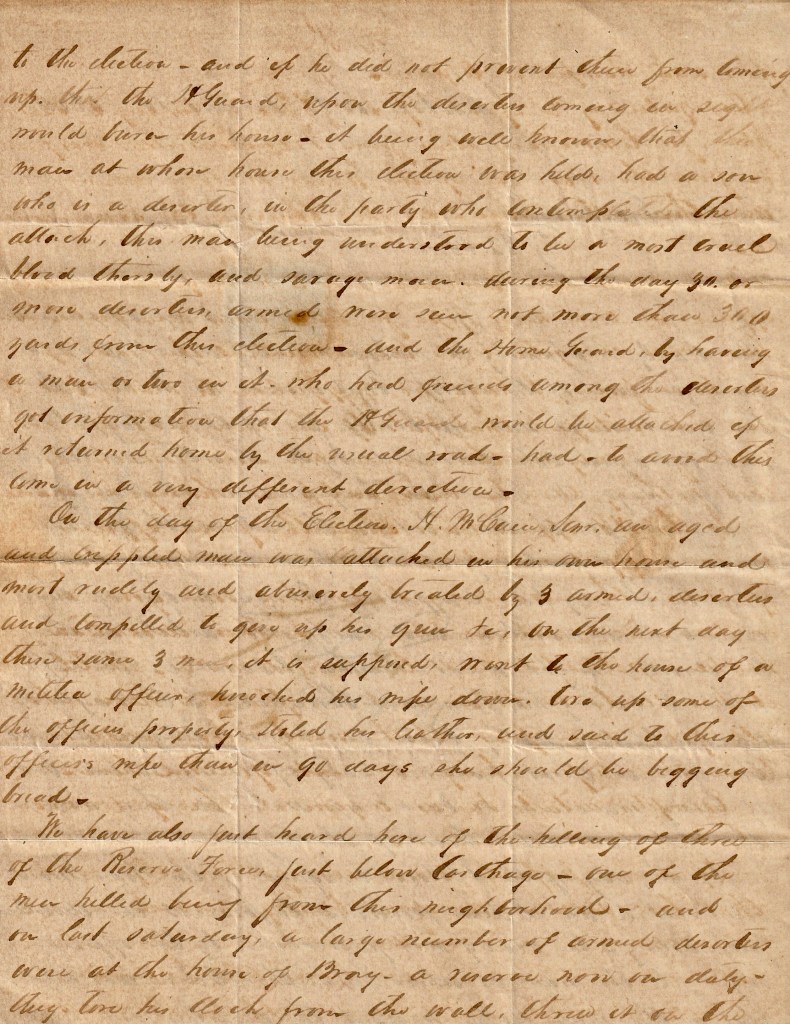 to the election - and if he did not prevent them from coming
up. the H Guard, upon the deserters coming in
would burn his house - it being well known, that
man at whose house this election was held, had a son
who is a deserter, in the party who the
attack, this man being understood to be a most cruel
blood thirsty, and savage man. during the day 30. or
more deserters, armed were seen not more than 300
yards from this election - and the Home Guard, by having
a man or two in it. who had friends among the deserters
got information that the H Guard would be attacked if
it returned home by the usual road - had - to avoid this
come in a very different direction -
On the day of the Election. H. McCain, Senr. an aged
and crippled man was attacked in his own house and
most rudely and abusively treated by 3 armed, deserters
and compelled to give up his gun &c, on the next day
these same 3 it is supposed, went to the house of a
militia officer, knocked his wife down. tore up some of
the officers property, his leather, and said to this
officers wife than in 90 days she should be begging
bread -
We have also just heard here of the killing of three
of the Reserve Forces just below Carthage - one of the
men killed being from this neighborhood - and
on last saturday, a large number of armed deserters
were at the house of Bray - a reserve now on duty -
they tore his clock from the wall, threw it on the